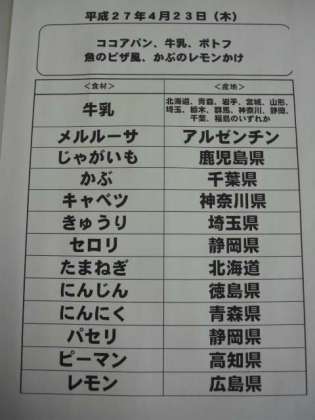 平成27年4月23日（木）
ココアパン、牛乳、ポトフ
魚のピザ風、かぶのレモンかけ
＜食材＞ ＜産地＞
牛乳 北海道、青森、岩手、宮城、山形、
埼玉、栃木、群馬、神奈川、静岡、
千葉、福島のいずれか
メルルーサ アルゼンチン
じゃがいも 鹿児島県
かぶ 千葉県
キャベツ 神奈川県
きゅうり 埼玉県
セロリ 静岡県
たまねぎ 北海道
にんじん 徳島県
にんにく 青森県
パセリ 静岡県
ピーマン 高知県
レモン 広島県